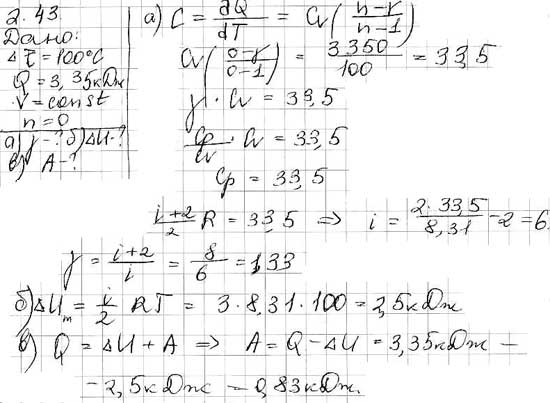 2.43
Дано:
Δτ = 100°C
Q = 3,35кДж
ν = const
n = 0
а) γ - ? б) ΔU - ?
в) A - ?
а) C = ∂Q/dT = Cv ( n-γ / n-1 )
Cv ( 0-γ / 0-1 ) = 3350/100 = 33,5
γ · Cv = 33,5
Cp/Cv · Cv = 33,5
Cp = 33,5
i+2/2 R = 33,5 => i = 2·33,5/8,31 - 2 = 6
γ = i+2/i = 8/6 = 1,33
б) ΔUm = i/2 RT = 3·8,31·100 = 2,5кДж
в) Q = ΔU + A => A = Q - ΔU = 3,35кДж -
- 2,5кДж = 0,83кДж.